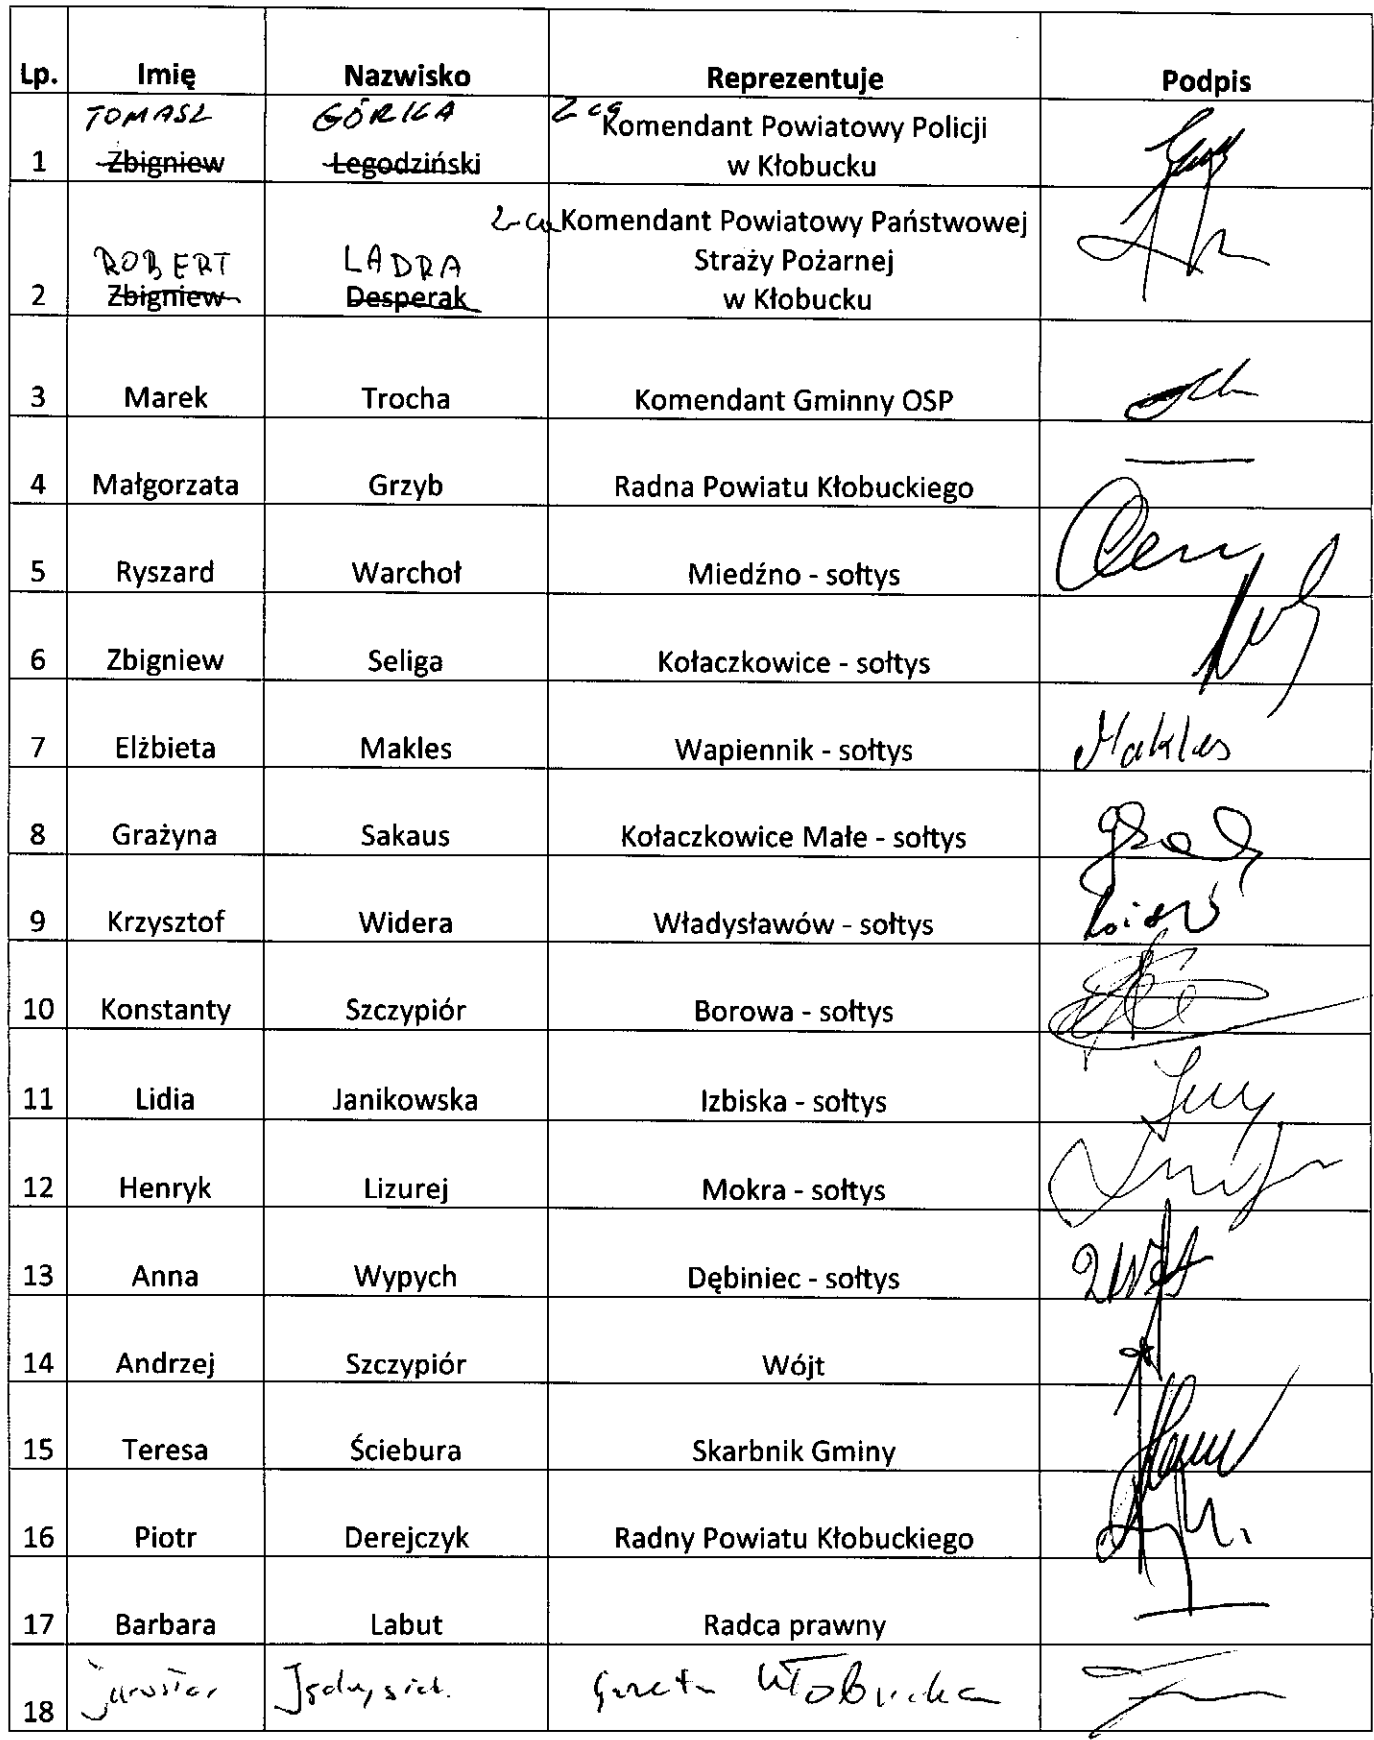 Lp. Imię Nazwisko Reprezentuje Podpis
TOMASZ GÓRKA Z-ca Komendant Powiatowy Policji
1 Zbigniew Legodziński w Kłobucku
Z-ca Komendant Powiatowy Państwowej
ROBERT LADRA Straży Pożarnej
2 Zbigniew Desperak w Kłobucku
3 Marek Trocha Komendant Gminny OSP
4 Małgorzata Grzyb Radna Powiatu Kłobuckiego
5 Ryszard Warchoł Miedźno - sołtys
6 Zbigniew Seliga Kołaczkowice - sołtys
7 Elżbieta Makles Wapiennik - sołtys Makles
8 Grażyna Sakaus Kołaczkowice Małe - sołtys
9 Krzysztof Widera Władysławów - sołtys
10 Konstanty Szczypiór Borowa - sołtys
11 Lidia Janikowska Izbiska - sołtys
12 Henryk Lizurej Mokra - sołtys
13 Anna Wypych Dębiniec - sołtys
14 Andrzej Szczypiór Wójt
15 Teresa Ściebura Skarbnik Gminy
16 Piotr Derejczyk Radny Powiatu Kłobuckiego
17 Barbara Labut Radca prawny
18 Kłobucka